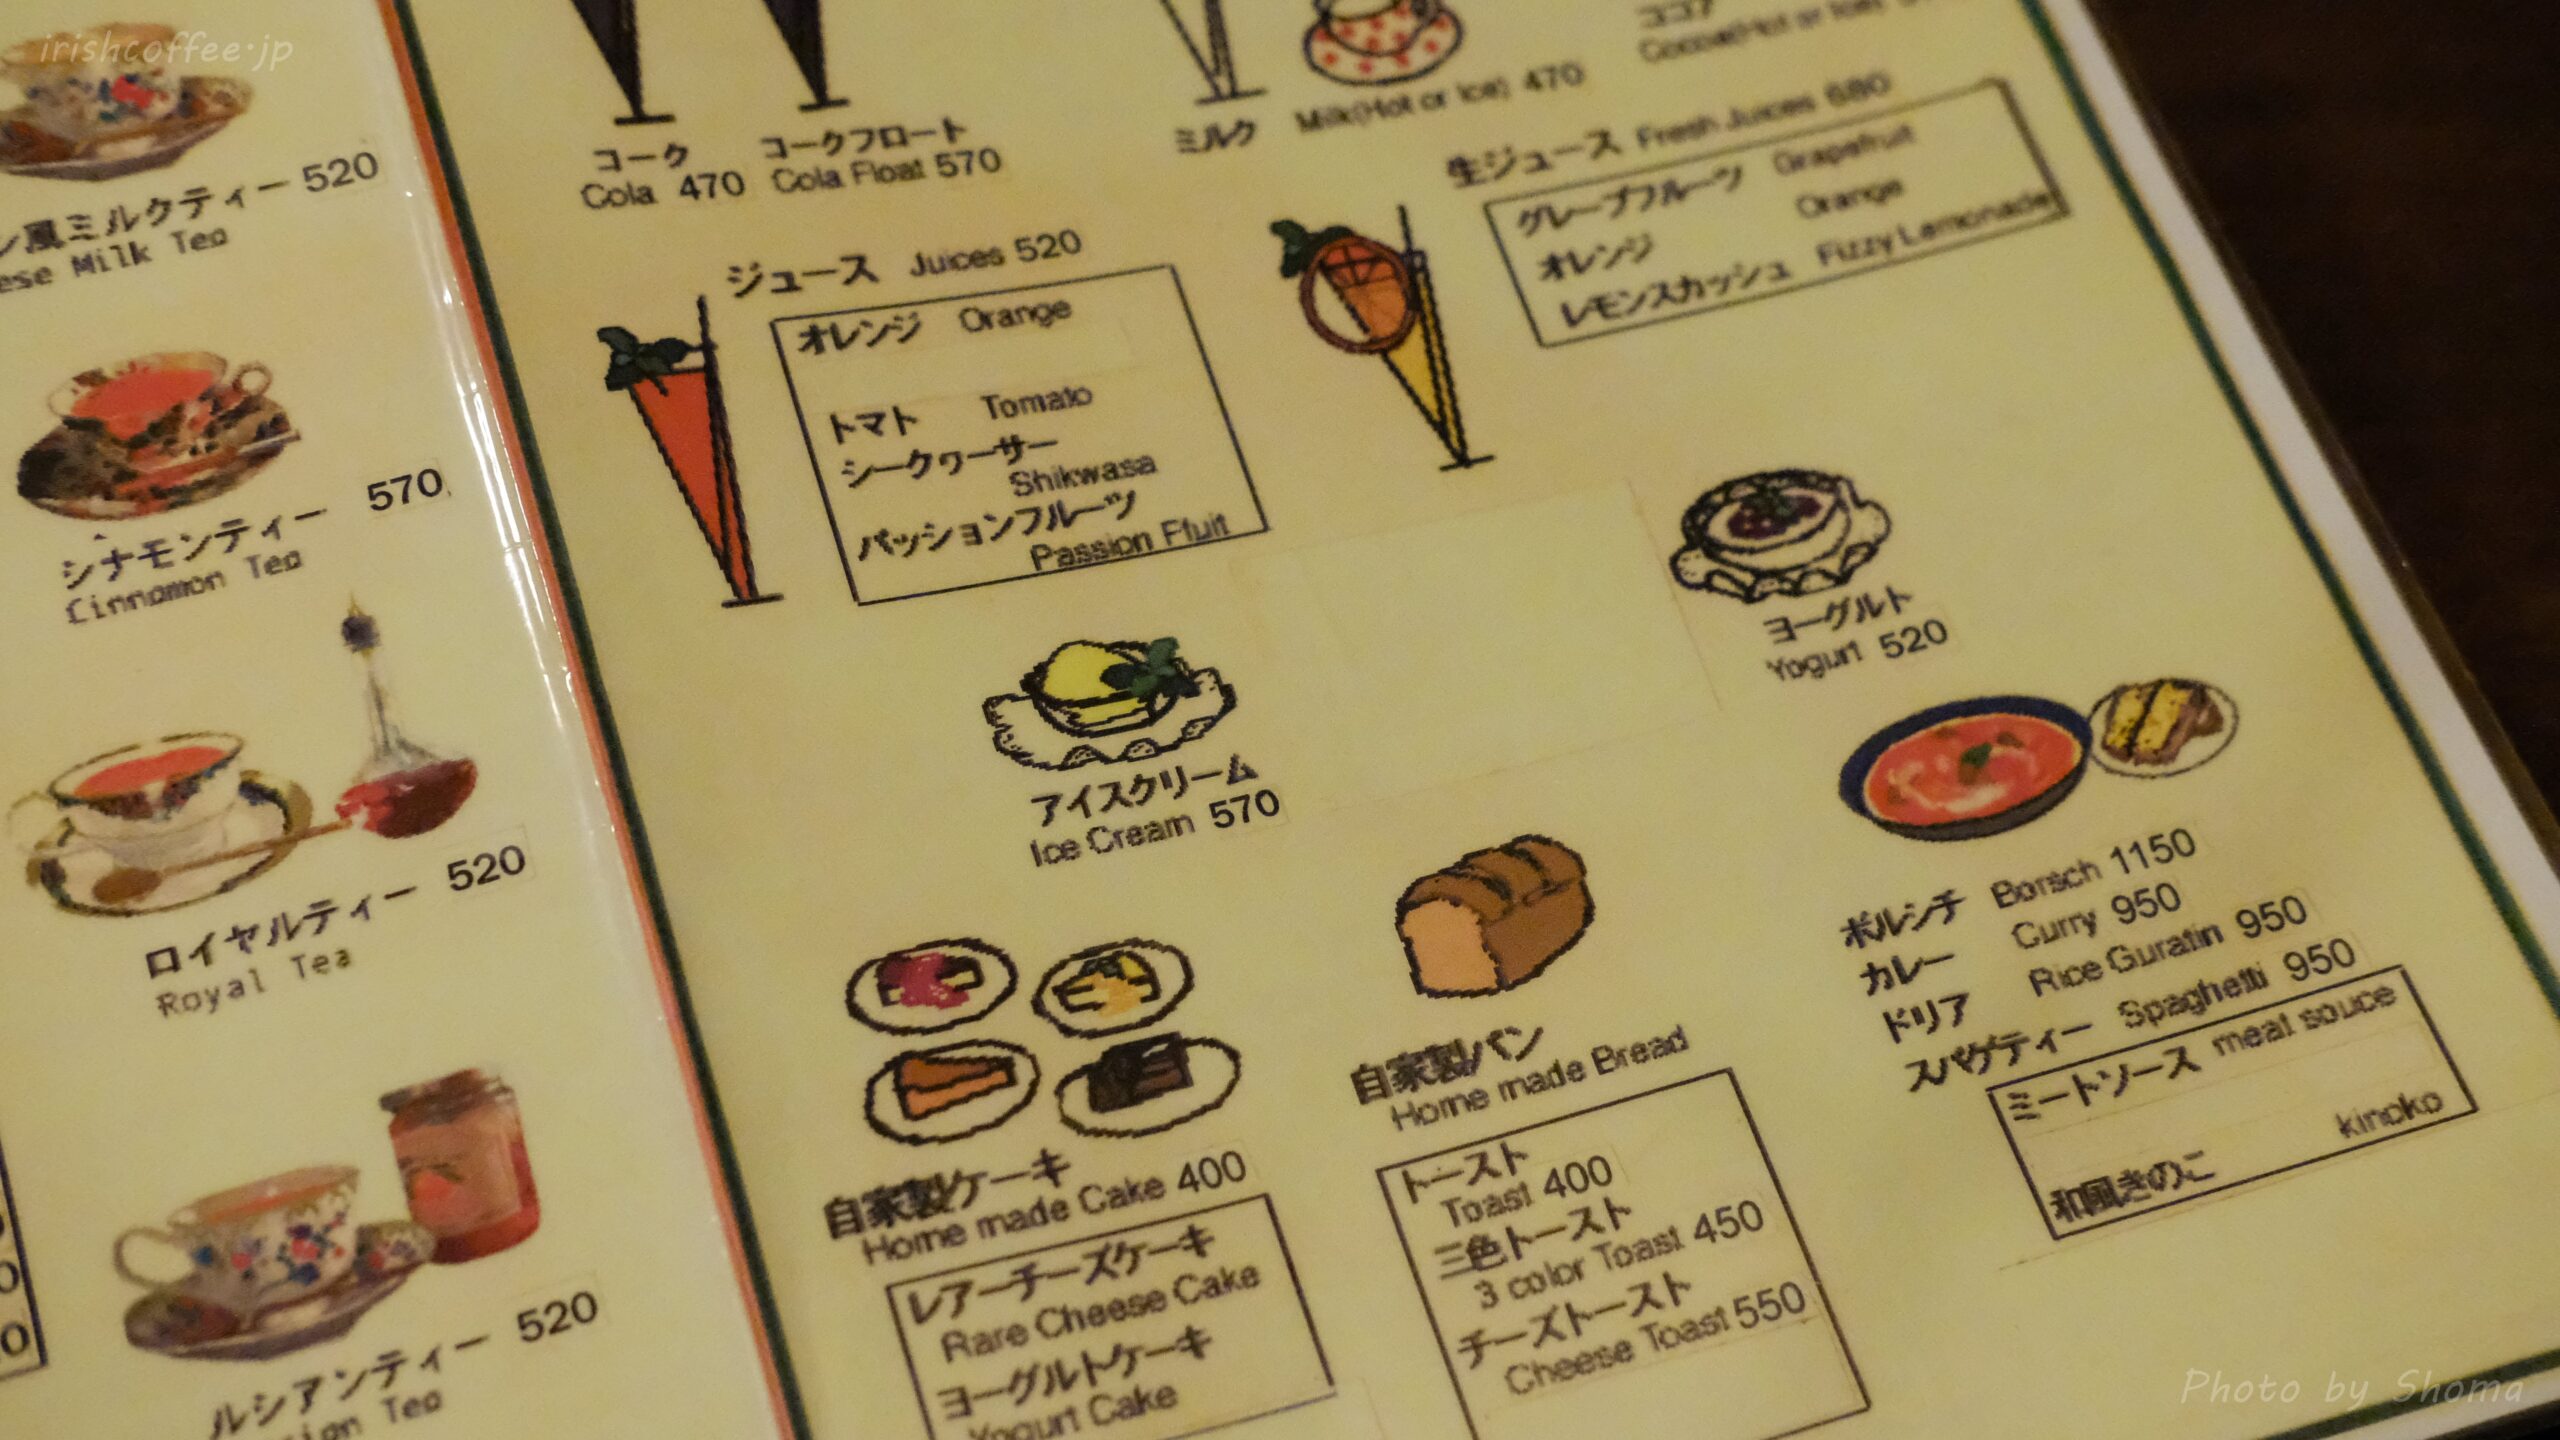 irishcoffee.jp
風ミルクティー 520
ese Milk Tea
シナモンティー 570
Cinnamon Tea
ロイヤルティー 520
Royal Tea
ルシアンティー 520
Tea
コーク
Cola 470
コークフロート
Cola Float 570
ミルク
Milk(Hot or Ice) 470
ココア
Cocoa(Hot or Ice)
ジュース Juices 520
オレンジ Orange
トマト Tomato
シークヮーサー
Shikwasa
パッションフルーツ
Passion Ffuit
生ジュース Fresh Juices 680
グレープフルーツ Grapefruit
オレンジ Orange
レモンスカッシュ Fizzy Lemonade
アイスクリーム
Ice Cream 570
ヨーグルト
Yogurt 520
自家製ケーキ
Home made Cake 400
レアーチーズケーキ
Rare Cheese Cake
ヨーグルトケーキ
Yogurt Cake
自家製パン
Home made Bread
トースト
Toast 400
三色トースト
3 color Toast 450
チーズトースト
Cheese Toast 550
ボルシチ Borsch 1150
カレー Curry 950
ドリア Rice Guratin 950
スパゲティー Spaghetti 950
ミートソース meat souce
和風きのこ kinoko
Photo by Shoma